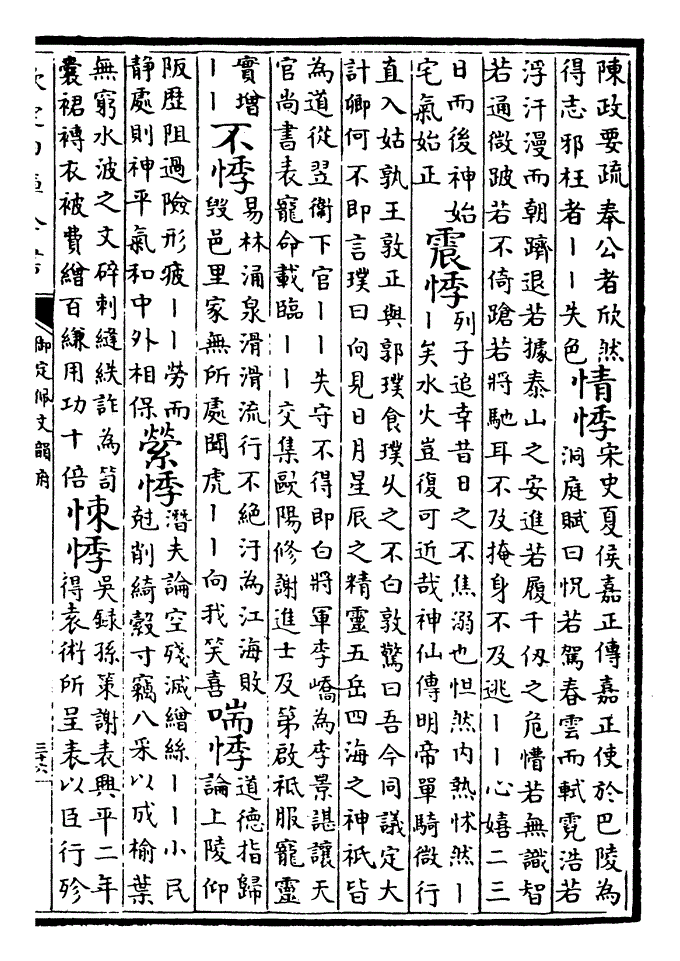 陳政要疏奉公者欣然
得志邪枉者丨丨失色
情悸
宋史夏侯嘉正傳嘉正使於巴陵為
洞庭賦曰怳若駕春雲而軾霓浩若
浮汗漫而朝躋退若據泰山之安進若履千仭之危懵若無識智
若通微跛若不倚蹌若將馳耳不及掩身不及逃丨丨心嬉二三
日而後神始
宅氣始正
震悸
列子追幸昔日之不焦溺也怛然内熱怵然丨
丨矣水火豈復可近哉神仙傳明帝單騎微行
直入姑孰王敦正與郭璞食璞乆之不白敦驚曰吾今同議定大
計卿何不即言璞曰向見日月星辰之精靈五岳四海之神祇皆
為道從翌衞下官丨丨失守不得即白將軍李嶠為李景諶讓天
官尚書表寵命載臨丨丨交集歐陽修謝進士及第啟祗服寵靈
實增
丨丨
不悸
易林涌泉滑滑流行不絶汙為江海敗
毁邑里家無所處聞虎丨丨向我笑喜
喘悸
道德指歸
論上陵仰
阪歴阻過險形疲丨丨勞而
靜處則神平氣和中外相保
縈悸
潛夫論空殘滅繒絲丨丨小民
尅削綺縠寸竊八采以成榆葉
無窮水波之文碎刺縫紩詐為笥
嚢裙褥衣被費繒百縑用功十倍
悚悸
吳録孫策謝表興平二年
得袁術所呈表以臣行殄
御定佩文韻府
三十六